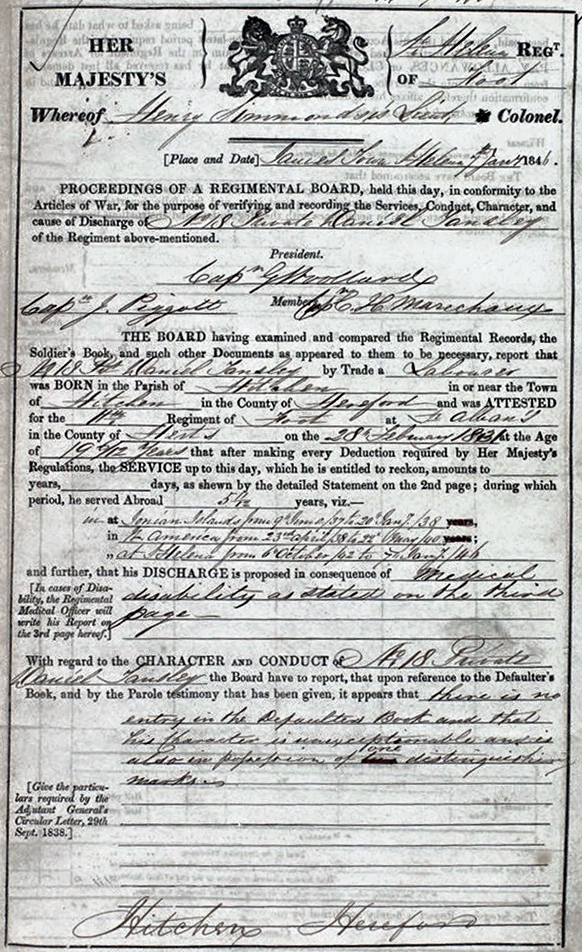 HER MAJESTY'S
St Helena REGT.
OF Foot
Whereof Henry Simmonds Lieut Colonel.
[Place and Date] James Town St Helena 7th Jany 1846.
PROCEEDINGS OF A REGIMENTAL BOARD, held this day, in conformity to the
Articles of War, for the purpose of verifying and recording the Services, Conduct, Character, and
cause of Discharge of No 18 Private Daniel Tansley
of the Regiment above-mentioned.
President.
Capn G Woollard
Capn J. Pigott Members Capn C. H. Marechaux
THE BOARD having examined and compared the Regimental Records, the
Soldier's Book, and such other Documents as appeared to them to be necessary, report that
No 18 Pt Daniel Tansley by Trade a Labourer
was BORN in the Parish of Hitchen in or near the Town
of Hitchen in the County of Hereford and was ATTESTED
for the 11th Regiment of Foot at St Albans
in the County of Herts on the 28th February at the Age
of 19 Years that after making every Deduction required by Her Majesty's
Regulations, the SERVICE up to this day, which he is entitled to reckon, amounts to
years, days, as shewn by the detailed Statement on the 2nd page; during which
period, he served Abroad 5 years, viz.—
at Ionian Islands from 9th June /37 to 20th Jany /38 years,
in N America from 23rd April /38 to May /40 years;
„ at St Helena from 6th October /42 to 7th Jany /46
and further, that his DISCHARGE is proposed in consequence of Medical
[In cases of Disability, the Regimental Medical Officer will write his Report on the 3rd page hereof.]
disability as stated on the third
page
With regard to the CHARACTER AND CONDUCT of No 18 Private
Daniel Tansley the Board have to report, that upon reference to the Defaulter's
Book, and by the Parole testimony that has been given, it appears that there is no
entry in the Defaulters Book and that
his Character is unexceptionable and is
also in possession of one distinguishing
marks.
[Give the particulars required by the Adjutant General's Circular Letter, 29th Sept. 1838.]
Hitchen Hereford